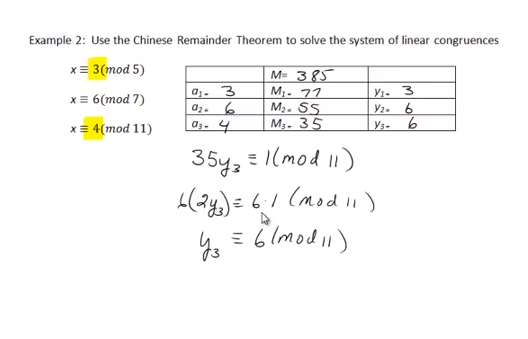 Example 2: Use the Chinese Remainder Theorem to solve the system of linear congruences
x ≡ 3(mod 5)
x ≡ 6(mod 7)
x ≡ 4(mod 11)
M= 385
a₁= 3 M₁= 77 y₁= 3
a₂= 6 M₂= 55 y₂= 6
a₃= 4 M₃= 35 y₃= 6
35y₃ ≡ 1(mod 11)
6(2y₃) ≡ 6·1 (mod 11)
y₃ ≡ 6(mod 11)